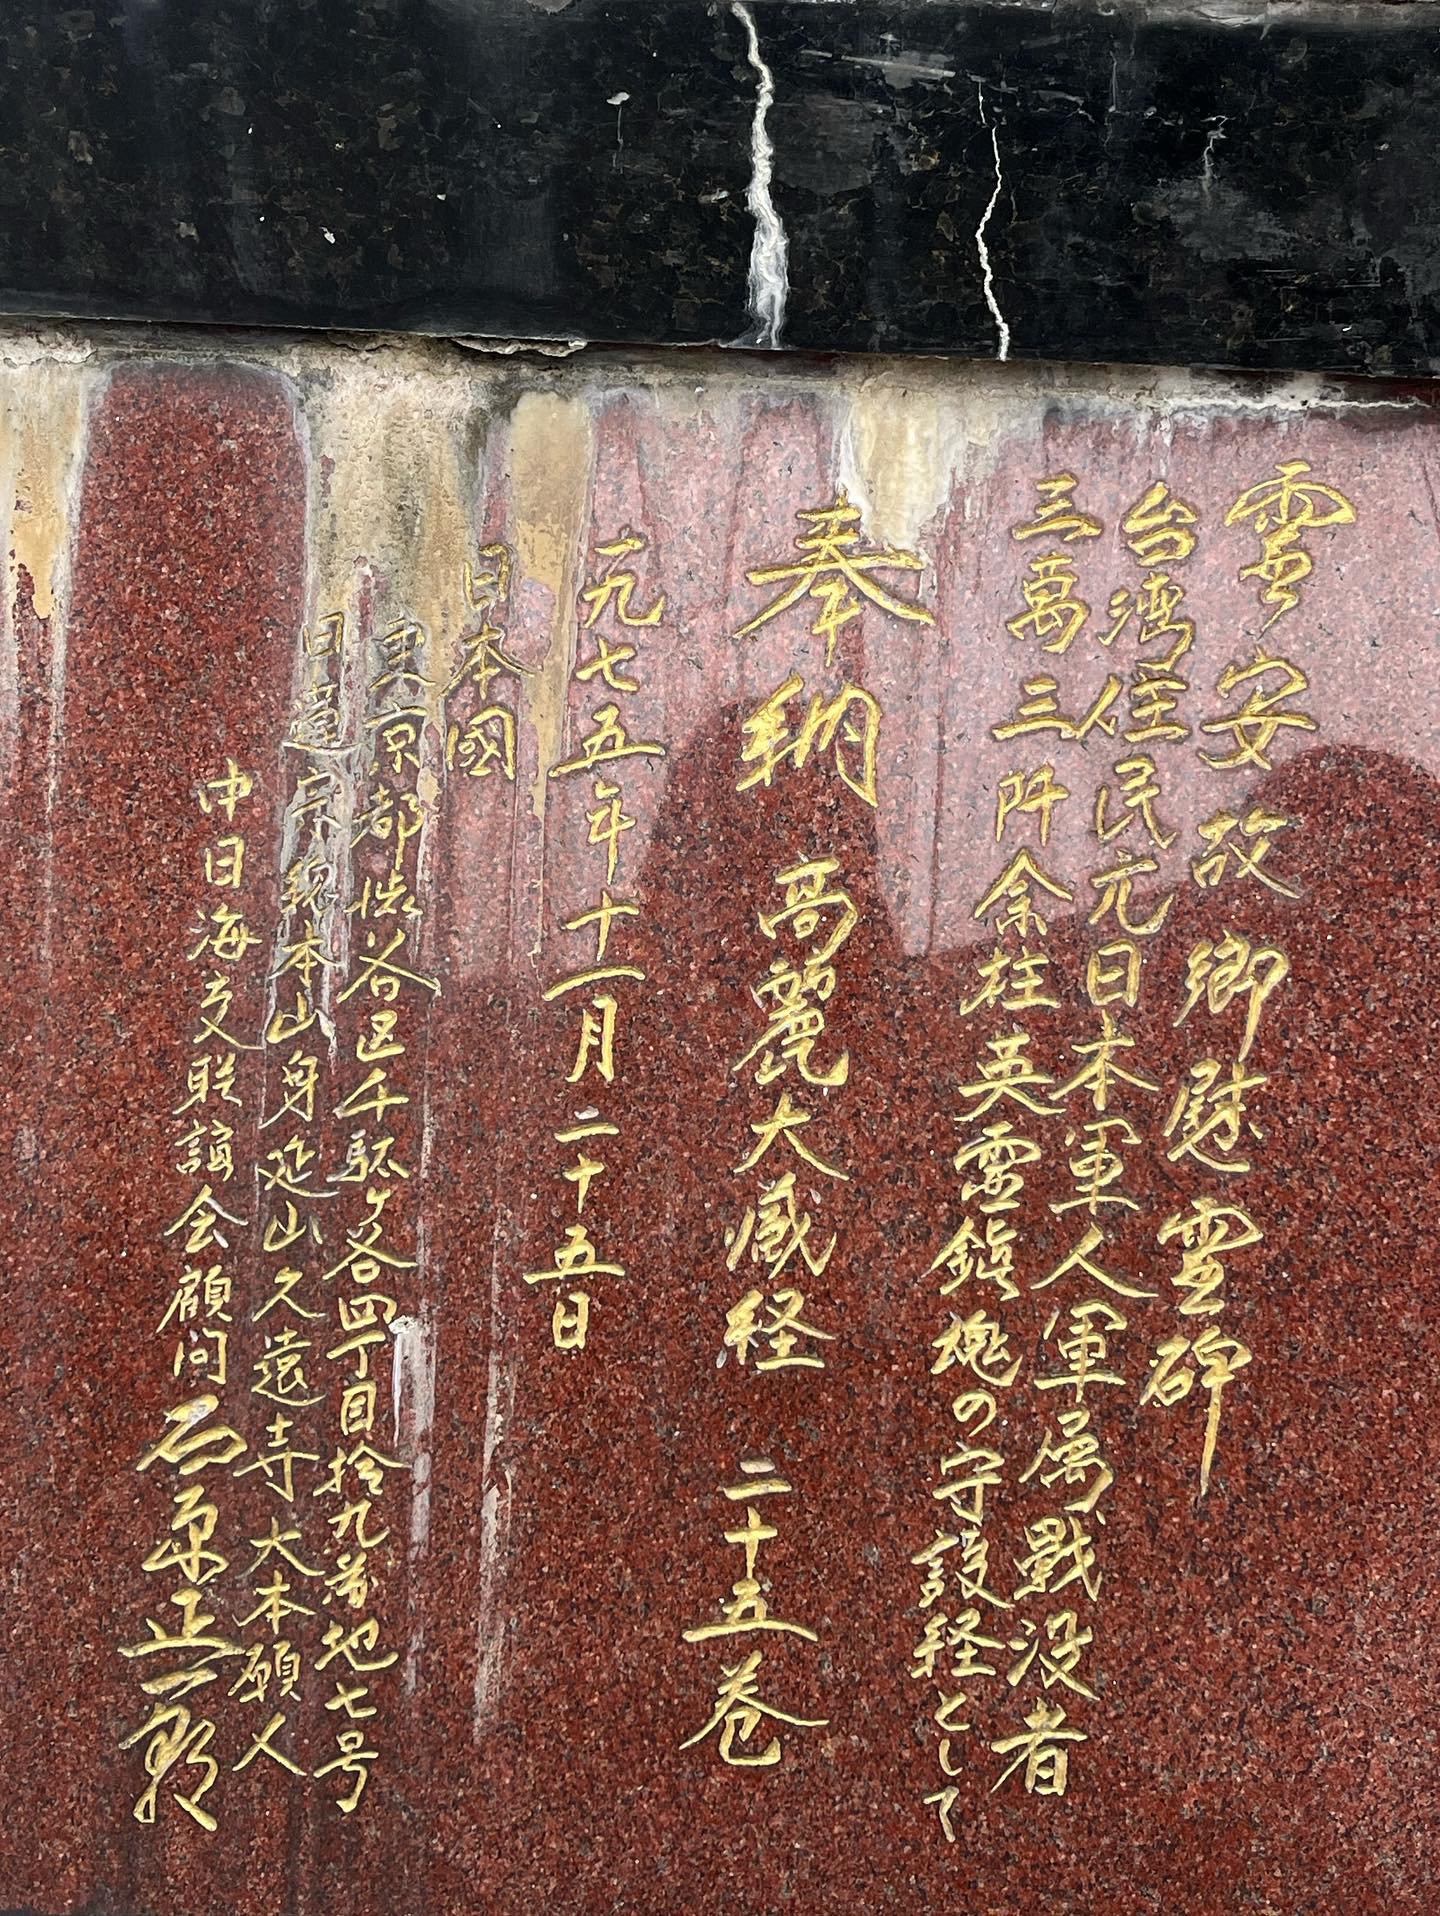 霊安故郷慰霊碑
台湾住民元日本軍人軍属戦没者
三萬三阡余柱英霊鎮魂の守護経として
奉納 高麗大蔵経 二十五巻
一九七五年十一月二十五日
日本國
東京都渋谷区千駄ヶ谷四丁目拾九番地七号
日蓮宗総本山身延山久遠寺大本願人
中日海交联誼会顧問 石原正一郎